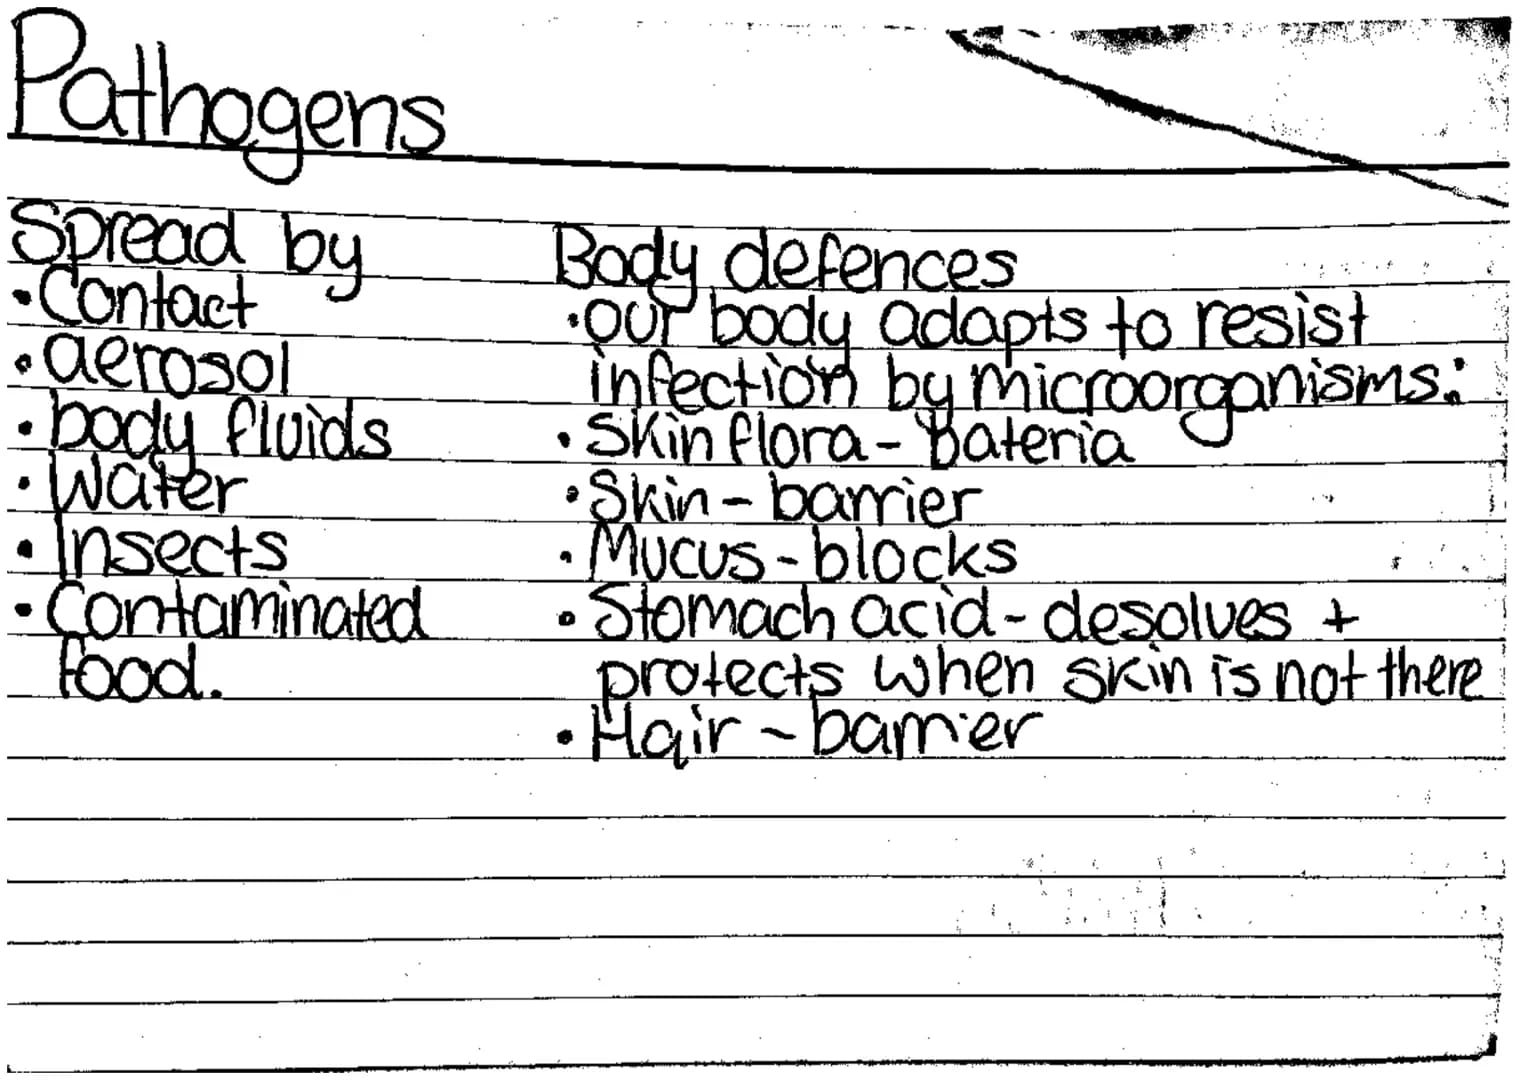 Pathogens
Spread by
•Contact
•aerosol
•body fluids
•Water
•Insects
•Contaminated
food.
Body defences
•our body adapts to resist
infection by microorganisms:
•Skin flora - bateria
•Skin - barrier
•Mucus - blocks
•Stomach acid - desolves +
protects when skin is not there
•Hair - barrier